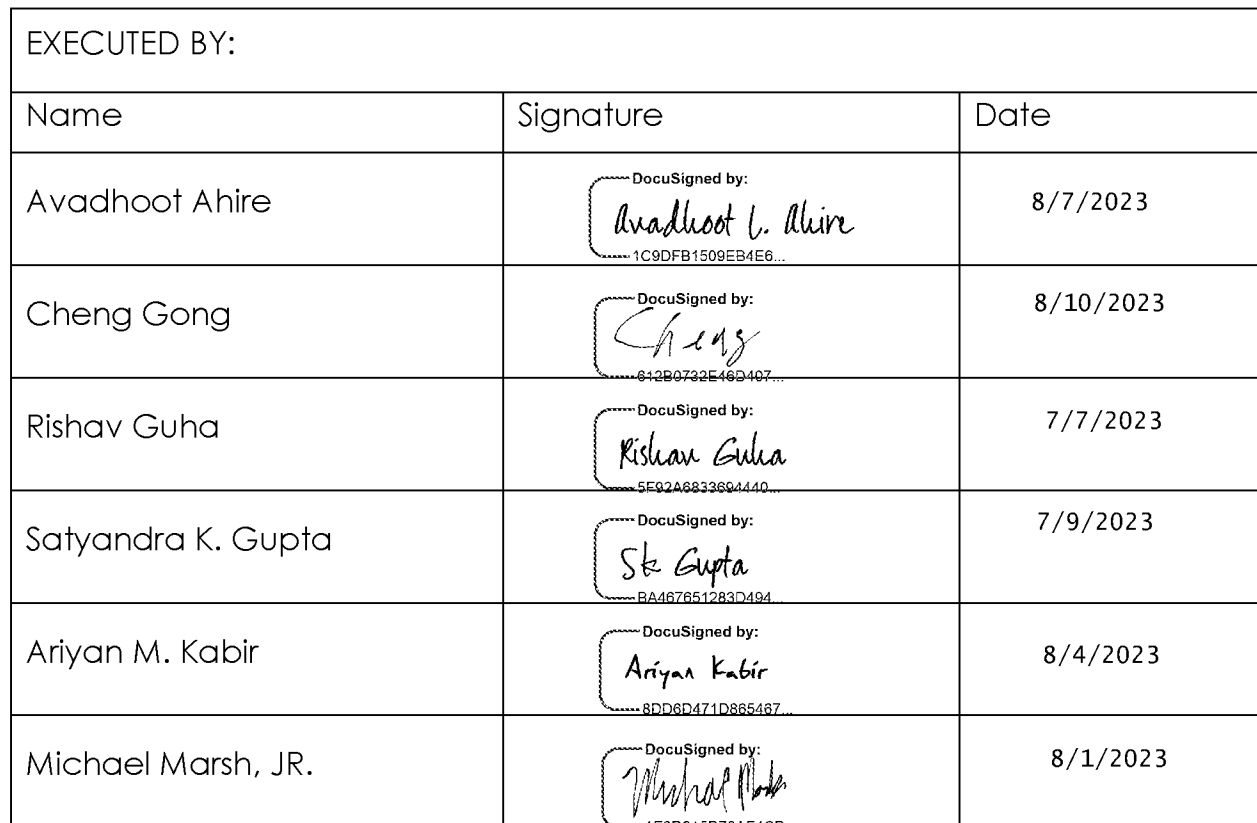 EXECUTED BY:
Name Signature Date
Avadhoot Ahire DocuSigned by: Avadhoot L. Ahire 1C9DFB1509EB4E6... 8/7/2023
Cheng Gong DocuSigned by: Cheng 612B0732E46D407... 8/10/2023
Rishav Guha DocuSigned by: Rishav Guha 5F92A6833694440... 7/7/2023
Satyandra K. Gupta DocuSigned by: Sk Gupta BA467651283D494... 7/9/2023
Ariyan M. Kabir DocuSigned by: Ariyan Kabir 8DD6D471D865467... 8/4/2023
Michael Marsh, JR. DocuSigned by: 8/1/2023